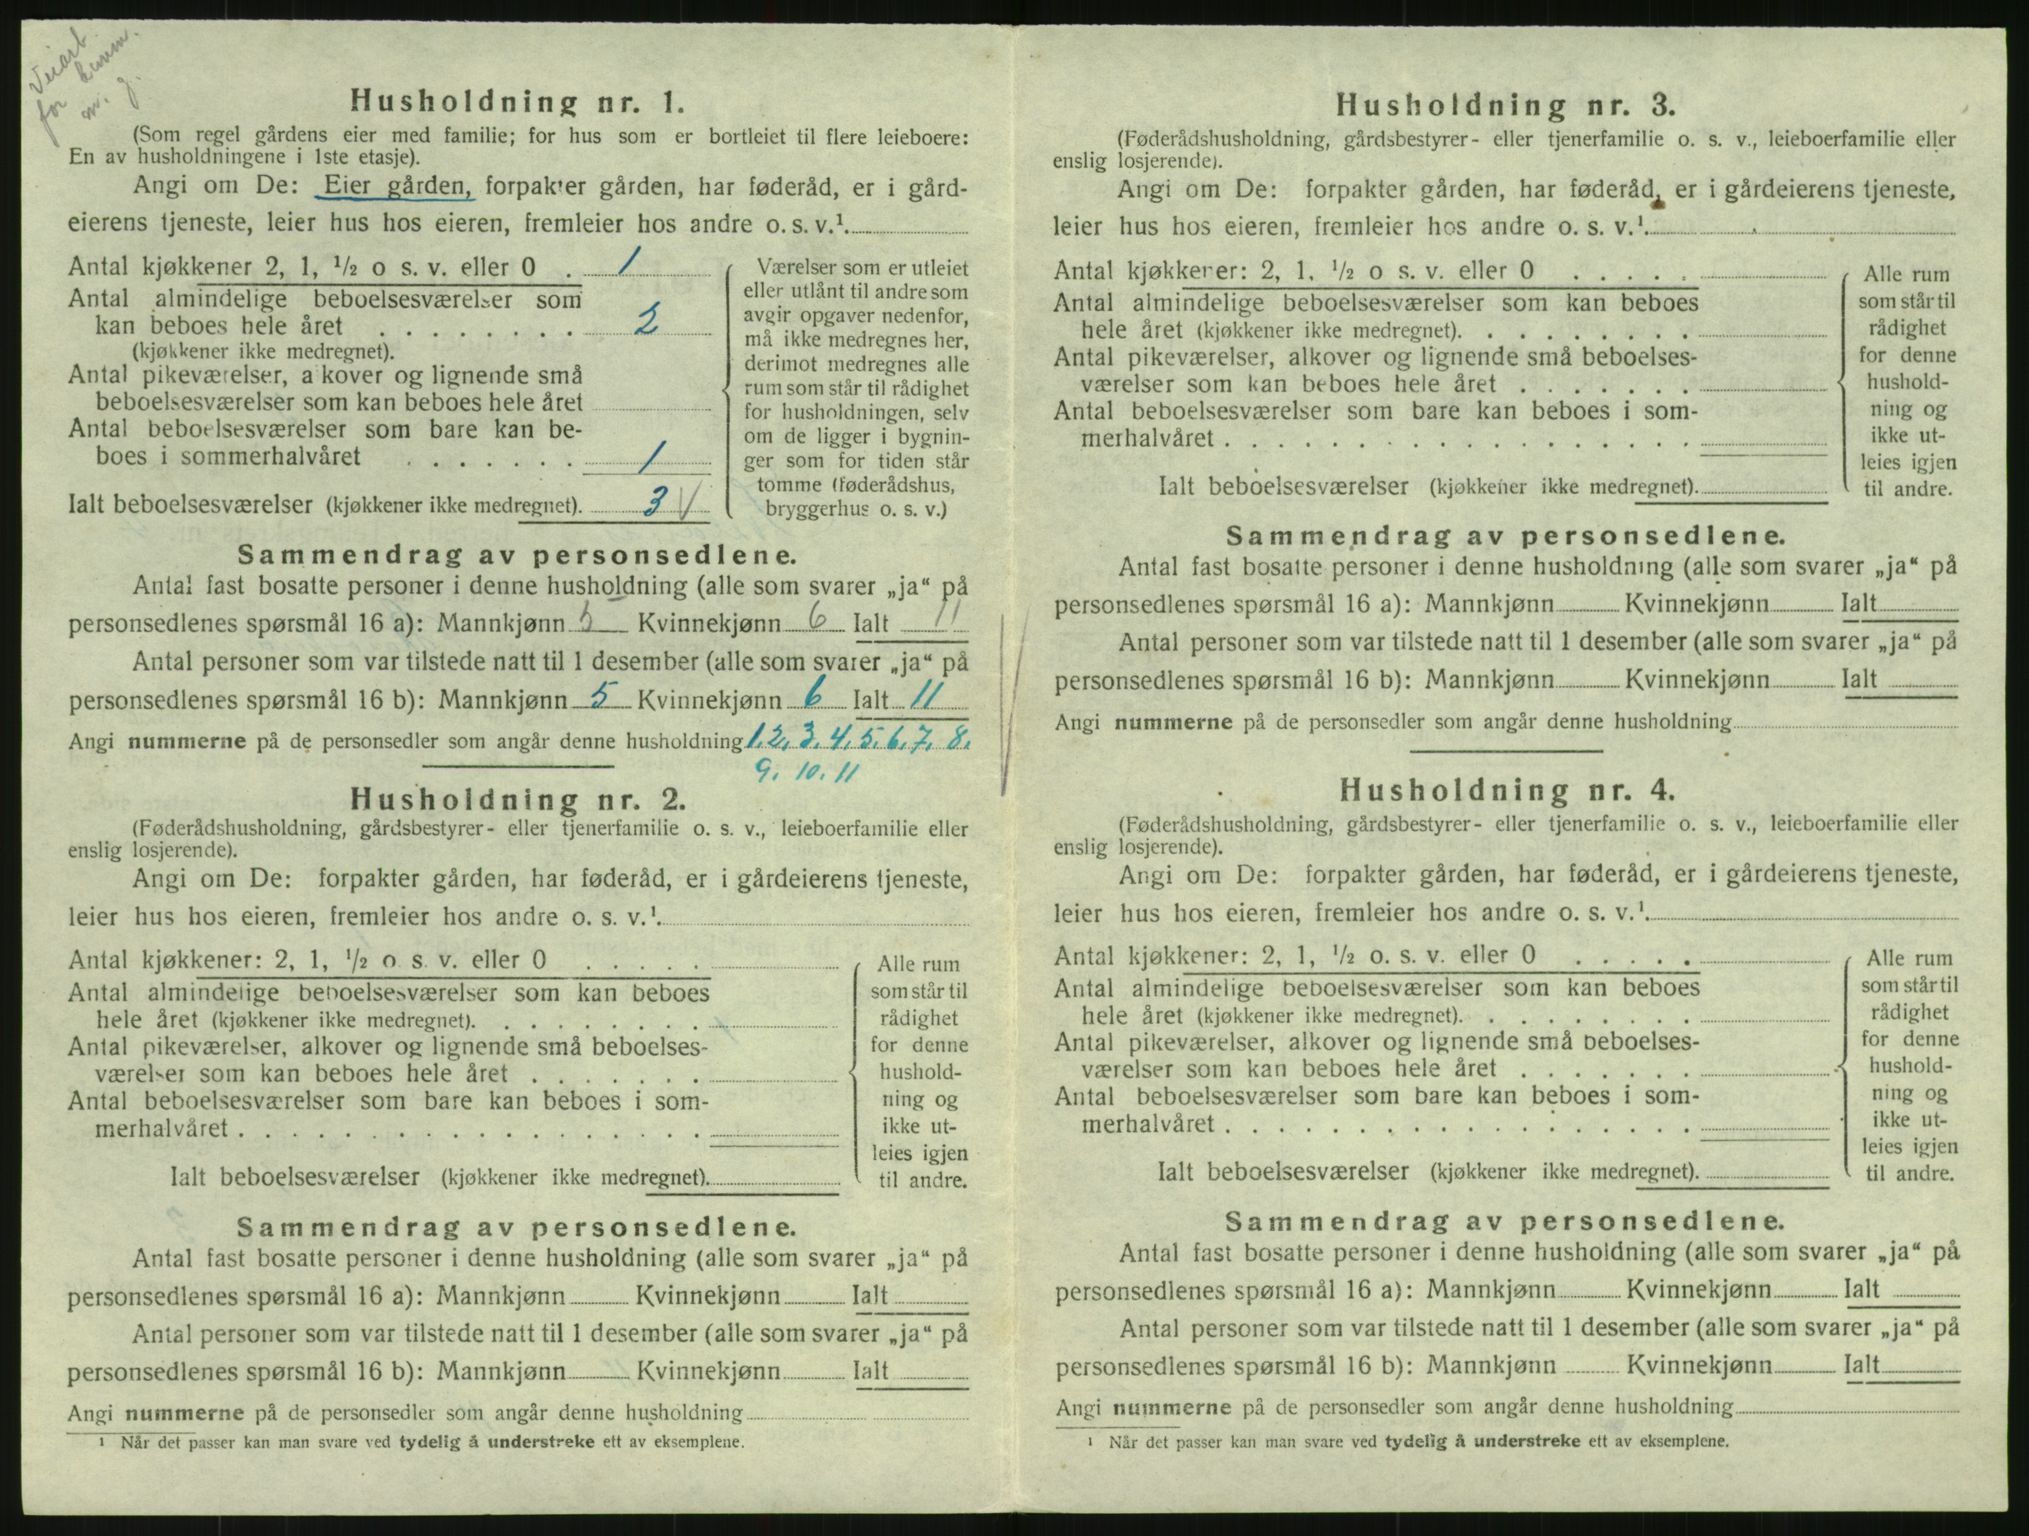 Veiarb.
for kmm.
m. g.
Husholdning nr. 1.
(Som regel gårdens eier med familie; for hus som er bortleiet til flere leieboere:
En av husholdningene i 1ste etasje).
Angi om De: Eier gården, forpakter gården, har føderåd, er i gård-
eierens tjeneste, leier hus hos eieren, fremleier hos andre o. s. v.¹
Antal kjøkkener 2, 1, ½ o s. v. eller 0 . 1
Antal almindelige beboelsesværelser som
kan beboes hele året . . . . . . . . 2
(kjøkkener ikke medregnet).
Antal pikeværelser, alkover og lignende små
beboelsesværelser som kan beboes hele året
Antal beboelsesværelser som bare kan be-
boes i sommerhalvåret . . . . . . . 1
Ialt beboelsesværelser (kjøkkener ikke medregnet). 3 √
Værelser som er utleiet
eller utlånt til andre som
avgir opgaver nedenfor,
må ikke medregnes her,
derimot medregnes alle
rum som står til rådighet
for husholdningen, selv
om de ligger i bygnin-
ger som for tiden står
tomme (føderådshus,
bryggerhus o. s. v.)
Sammendrag av personsedlene.
Antal fast bosatte personer i denne husholdning (alle som svarer „ja“ på
personsedlenes spørsmål 16 a): Mannkjønn 5 Kvinnekjønn 6 Ialt 11
Antal personer som var tilstede natt til 1 desember (alle som svarer „ja“ på
personsedlenes spørsmål 16 b): Mannkjønn 5 Kvinnekjønn 6 Ialt 11
Angi nummerne på de personsedler som angår denne husholdning 1. 2. 3. 4. 5. 6. 7. 8.
9. 10. 11
Husholdning nr. 2.
(Føderådshusholdning, gårdsbestyrer- eller tjenerfamilie o. s. v., leieboerfamilie eller
enslig losjerende).
Angi om De: forpakter gården, har føderåd, er i gårdeierens tjeneste,
leier hus hos eieren, fremleier hos andre o. s. v.¹
Antal kjøkkener: 2, 1, ½ o. s. v. eller 0 . . . . .
Antal almindelige beboelsesværelser som kan beboes
hele året (kjøkkener ikke medregnet). . . . . . . . .
Antal pikeværelser, alkover og lignende små beboelses-
værelser som kan beboes hele året . . . . . . .
Antal beboelsesværelser som bare kan beboes i som-
merhalvåret . . . . . . . . . . . . . . . . . .
Ialt beboelsesværelser (kjøkkener ikke medregnet).
Alle rum
som står til
rådighet
for denne
hushold-
ning og
ikke ut-
leies igjen
til andre.
Sammendrag av personsedlene.
Antal fast bosatte personer i denne husholdning (alle som svarer „ja“ på
personsedlenes spørsmål 16 a): Mannkjønn Kvinnekjønn Ialt
Antal personer som var tilstede natt til 1 desember (alle som svarer „ja“ på
personsedlenes spørsmål 16 b): Mannkjønn Kvinnekjønn Ialt
Angi nummerne på de personsedler som angår denne husholdning
¹ Når det passer kan man svare ved tydelig å understreke ett av eksemplene.
Husholdning nr. 3.
(Føderådshusholdning, gårdsbestyrer- eller tjenerfamilie o. s. v., leieboerfamilie eller
enslig losjerende).
Angi om De: forpakter gården, har føderåd, er i gårdeierens tjeneste,
leier hus hos eieren, fremleier hos andre o. s. v.¹
Antal kjøkkener: 2, 1, ½ o s. v. eller 0 . . . . .
Antal almindelige beboelsesværelser som kan beboes
hele året (kjøkkener ikke medregnet). . . . . . . . .
Antal pikeværelser, alkover og lignende små beboelses-
værelser som kan beboes hele året . . . . . . .
Antal beboelsesværelser som bare kan beboes i som-
merhalvåret . . . . . . . . . . . . . . . . . .
Ialt beboelsesværelser (kjøkkener ikke medregnet).
Alle rum
som står til
rådighet
for denne
hushold-
ning og
ikke ut-
leies igjen
til andre.
Sammendrag av personsedlene.
Antal fast bosatte personer i denne husholdning (alle som svarer „ja“ på
personsedlenes spørsmål 16 a): Mannkjønn Kvinnekjønn Ialt
Antal personer som var tilstede natt til 1 desember (alle som svarer „ja“ på
personsedlenes spørsmål 16 b): Mannkjønn Kvinnekjønn Ialt
Angi nummerne på de personsedler som angår denne husholdning
Husholdning nr. 4.
(Føderådshusholdning, gårdsbestyrer- eller tjenerfamilie o. s. v., leieboerfamilie eller
enslig losjerende).
Angi om De: forpakter gården, har føderåd, er i gårdeierens tjeneste,
leier hus hos eieren, fremleier hos andre o. s. v.¹
Antal kjøkkener: 2, 1, ½ o. s. v. eller 0 . . . . .
Antal almindelige beboelsesværelser som kan beboes
hele året (kjøkkener ikke medregnet). . . . . . . . .
Antal pikeværelser, alkover og lignende små beboelses-
værelser som kan beboes hele året . . . . . . .
Antal beboelsesværelser som bare kan beboes i som-
merhalvåret . . . . . . . . . . . . . . . . . .
Ialt beboelsesværelser (kjøkkener ikke medregnet).
Alle rum
som står til
rådighet
for denne
hushold-
ning og
ikke ut-
leies igjen
til andre.
Sammendrag av personsedlene.
Antal fast bosatte personer i denne husholdning (alle som svarer „ja“ på
personsedlenes spørsmål 16 a): Mannkjønn Kvinnekjønn Ialt
Antal personer som var tilstede natt til 1 desember (alle som svarer „ja“ på
personsedlenes spørsmål 16 b): Mannkjønn Kvinnekjønn Ialt
Angi nummerne på de personsedler som angår denne husholdning
¹ Når det passer kan man svare ved tydelig å understreke ett av eksemplene.